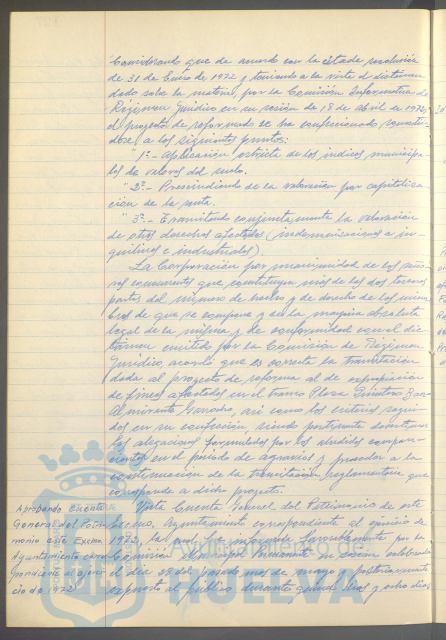 Considerando que de acuerdo con la citada resolución
de 31 de Enero de 1972 y teniendo a la vista el dictamen
dado sobre la materia, por la Comisión Informativa de
Régimen Jurídico en su sesión de 18 de Abril de 1972,
el proyecto de reformado se ha confeccionado
a los siguientes puntos:
"1º.- Aplicación estricta de los índices municipa-
les de valores del suelo.
"2º.- Prescindiendo de la valoración por capitaliza-
ción de la renta.
"3º.- Tramitando conjuntamente la valoración
de otros derechos afectados (indemnizaciones a in-
quilinos e industriales).
La Corporación por unanimidad de los seño-
res concurrentes que constituyen más de las dos terceras
partes del número de hecho y de derecho de los miem-
bros de que se compone y en la mayoría absoluta
legal de la misma y de conformidad con el dic-
tamen emitido por la Comisión de Régimen
Jurídico, acordó que es correcta la tramitación
dada al proyecto de reforma al de expropiación
de fincas afectadas en el tramo Plaza
Almirante Garrocho, así como los criterios segui-
dos en su confección, siendo pertinente desestimar
las alegaciones formuladas por los aludidos compare-
cientes en el período de agravios y proceder a la
continuación de la tramitación reglamentaria que
corresponde a dicho proyecto.
Aprobando Cuenta
General del Patri-
monio este Excmo.
Ayuntamiento corres-
pondiente al ejerci-
cio de 1972
Vista Cuenta General del Patrimonio de este
Excmo. Ayuntamiento correspondiente al ejercicio de
1972, la cual fue informada favorablemente por la
Comisión Municipal Permanente en sesión celebrada
el día 28 del pasado mes de mayo y posteriormente
expuesta al público durante quince días y ocho días
AYUNTAMIENTO DE
HUELVA